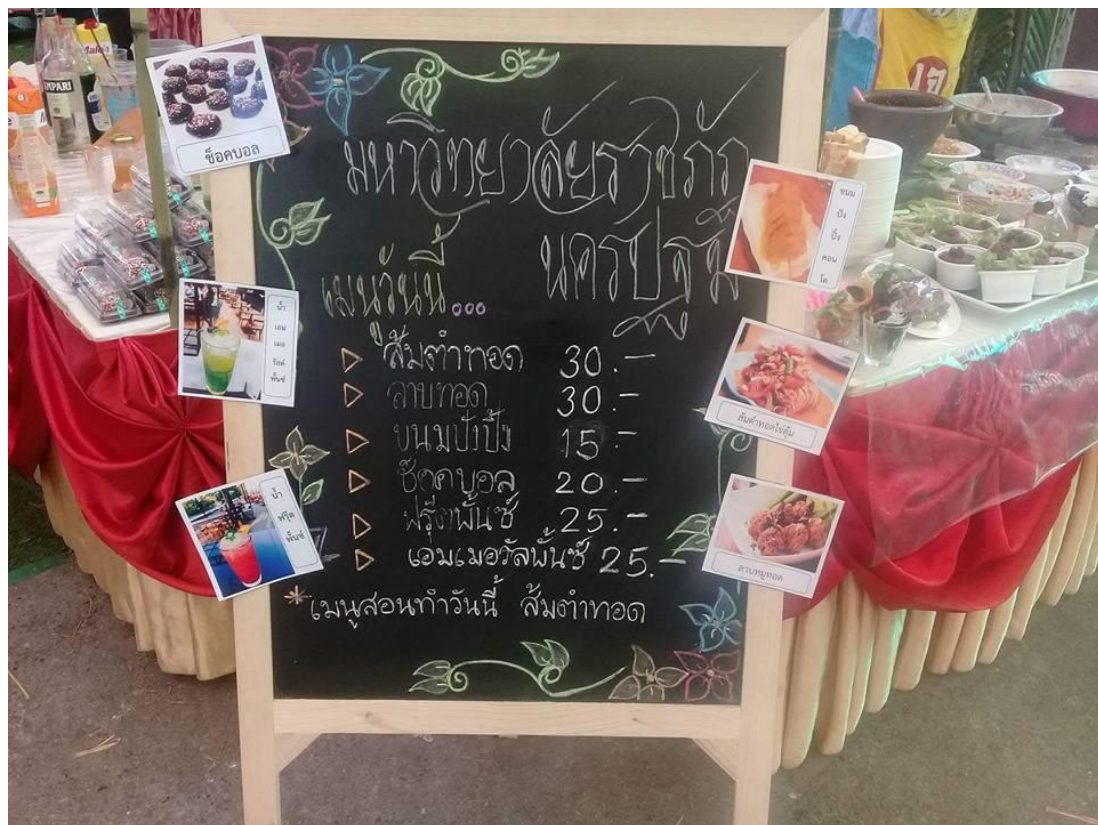 มหาวิทยาลัยราชภัฏ
นครปฐม
เมนูวันนี้...
ส้มตำทอด 30.-
ลาบทอด 30.-
ขนมปังปิ้ง 15.-
ช็อคบอล 20.-
ฟรุ๊ตพั้นซ์ 25.-
เอมเมอรัลพั้นซ์ 25.-
*เมนูสอนทำวันนี้ ส้มตำทอด
ช็อคบอล
น้ำ
เอม
เมอ
รัลด์
พั้นซ์
น้ำ
ฟรุ๊ต
พั้นซ์
ขนม
ปัง
ปิ้ง
คอน
โด
ส้มตำทอดไข่คุ้ม
ลาบหมูทอด
CAMPARI
Malee